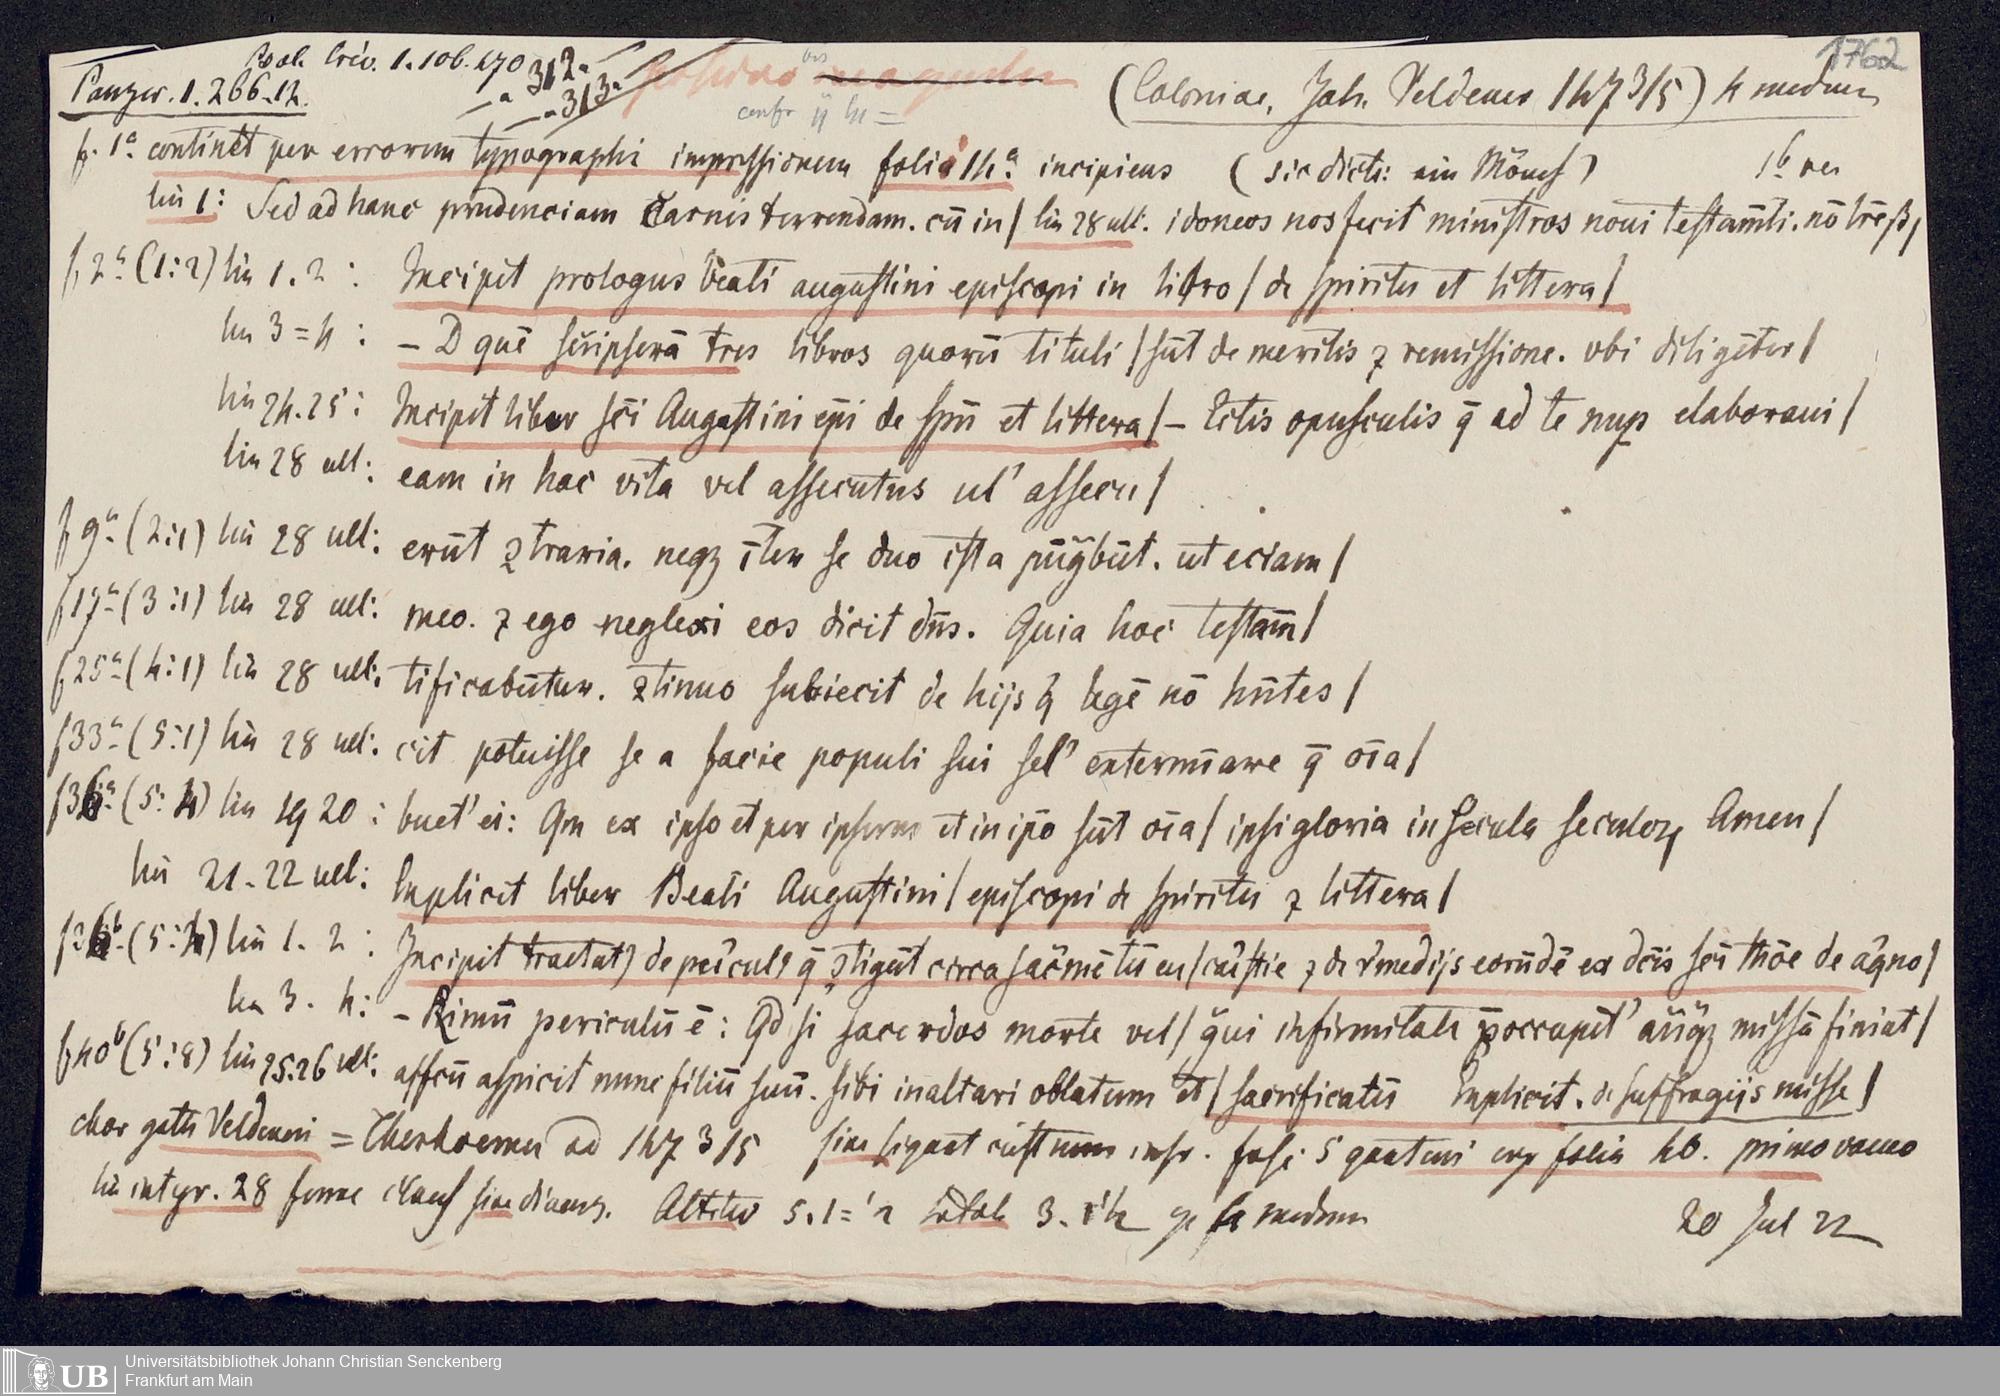 1762
Panzer. 1. 266.12.
Criv. 1. 106. 470
312.
313.
(Coloniae, Joh. Veldener 1473/5) 4 medium
f. 1a continet per errorem typographi impressionem folia 14a incipiens (sic dict: 1b
lin 1: Sed ad hanc prudenciam Carnis terrendam. cū in / lin 28 ult. idoneos nos fecit ministros noui testam̄ti. nō
f 2a (1:2) lin 1. 2 : Incipit prologus beati augustini episcopi in libro / de spiritu et littera /
lin 3=4 : – D quē scripserā tres libros quorū tituli / sūt de meritis ⁊ remissione. vbi diligēter /
lin 24. 25 : Incipit liber sc̄i Augustini ep̄i de spū et littera / – Lctis opusculis q̄ ad te nup elaboraui /
lin 28 ult: eam in hac vita vel assecutus ul' assecu /
f 9a (2:1) lin 28 ult: erūt ꝯtraria. neqꝫ īter se duo ista pūgbūt. ut eciam /
f 17a (3:1) lin 28 ult: meo. ⁊ ego neglexi eos dicit dn̄s. Quia hoc testam̄ /
f 25a (4:1) lin 28 ult: tificabūtur. ꝯtinuo subiecit de hijs q̄ legē nō hn̄tes /
f 33a (5:1) lin 28 ult: cit potuisse se a facie populi sui sel' extermīare q̄ oīa /
f 36a (5:4) lin 19 20 : buet' ei: Qm ex ipso et per ipsum et in ip̄o sūt oīa / ipsi gloria in Secula seculoꝝ Amen /
lin 21-22 ult: Explicit liber Beati Augustini / episcopi de spiritu ⁊ littera /
f 36b (5:4) lin 1. 2 : Incipit tractatꝯ de piculꝭ q̄ ꝯtigūt circa sacmētū eu / caristie ⁊ de rmedijs eorūdē ex dc̄is sc̄i thōe de aqno /
lin 3. 4: – Rimū periculū ē : Qd si sacerdos morte vel / gui infirmitate p̄occupet' añqꝫ missā finiat /
f 40b (5:8) lin 25.26 ult: affcū aspicit nunc filiū suū. sibi in altari oblatum et / sacrificatū Explicit. de suffragijs misse /
char goth Veldeneri = Therhoernen ad 1473/5 sine signat custnum insr. fasc 5 quaterni folia 40. primo vacuo
lin integr. 28 sine Altitudo 5. 1= 3. 4 medium 20 Jul 22
Universitätsbibliothek Johann Christian Senckenberg
Frankfurt am Main
UB